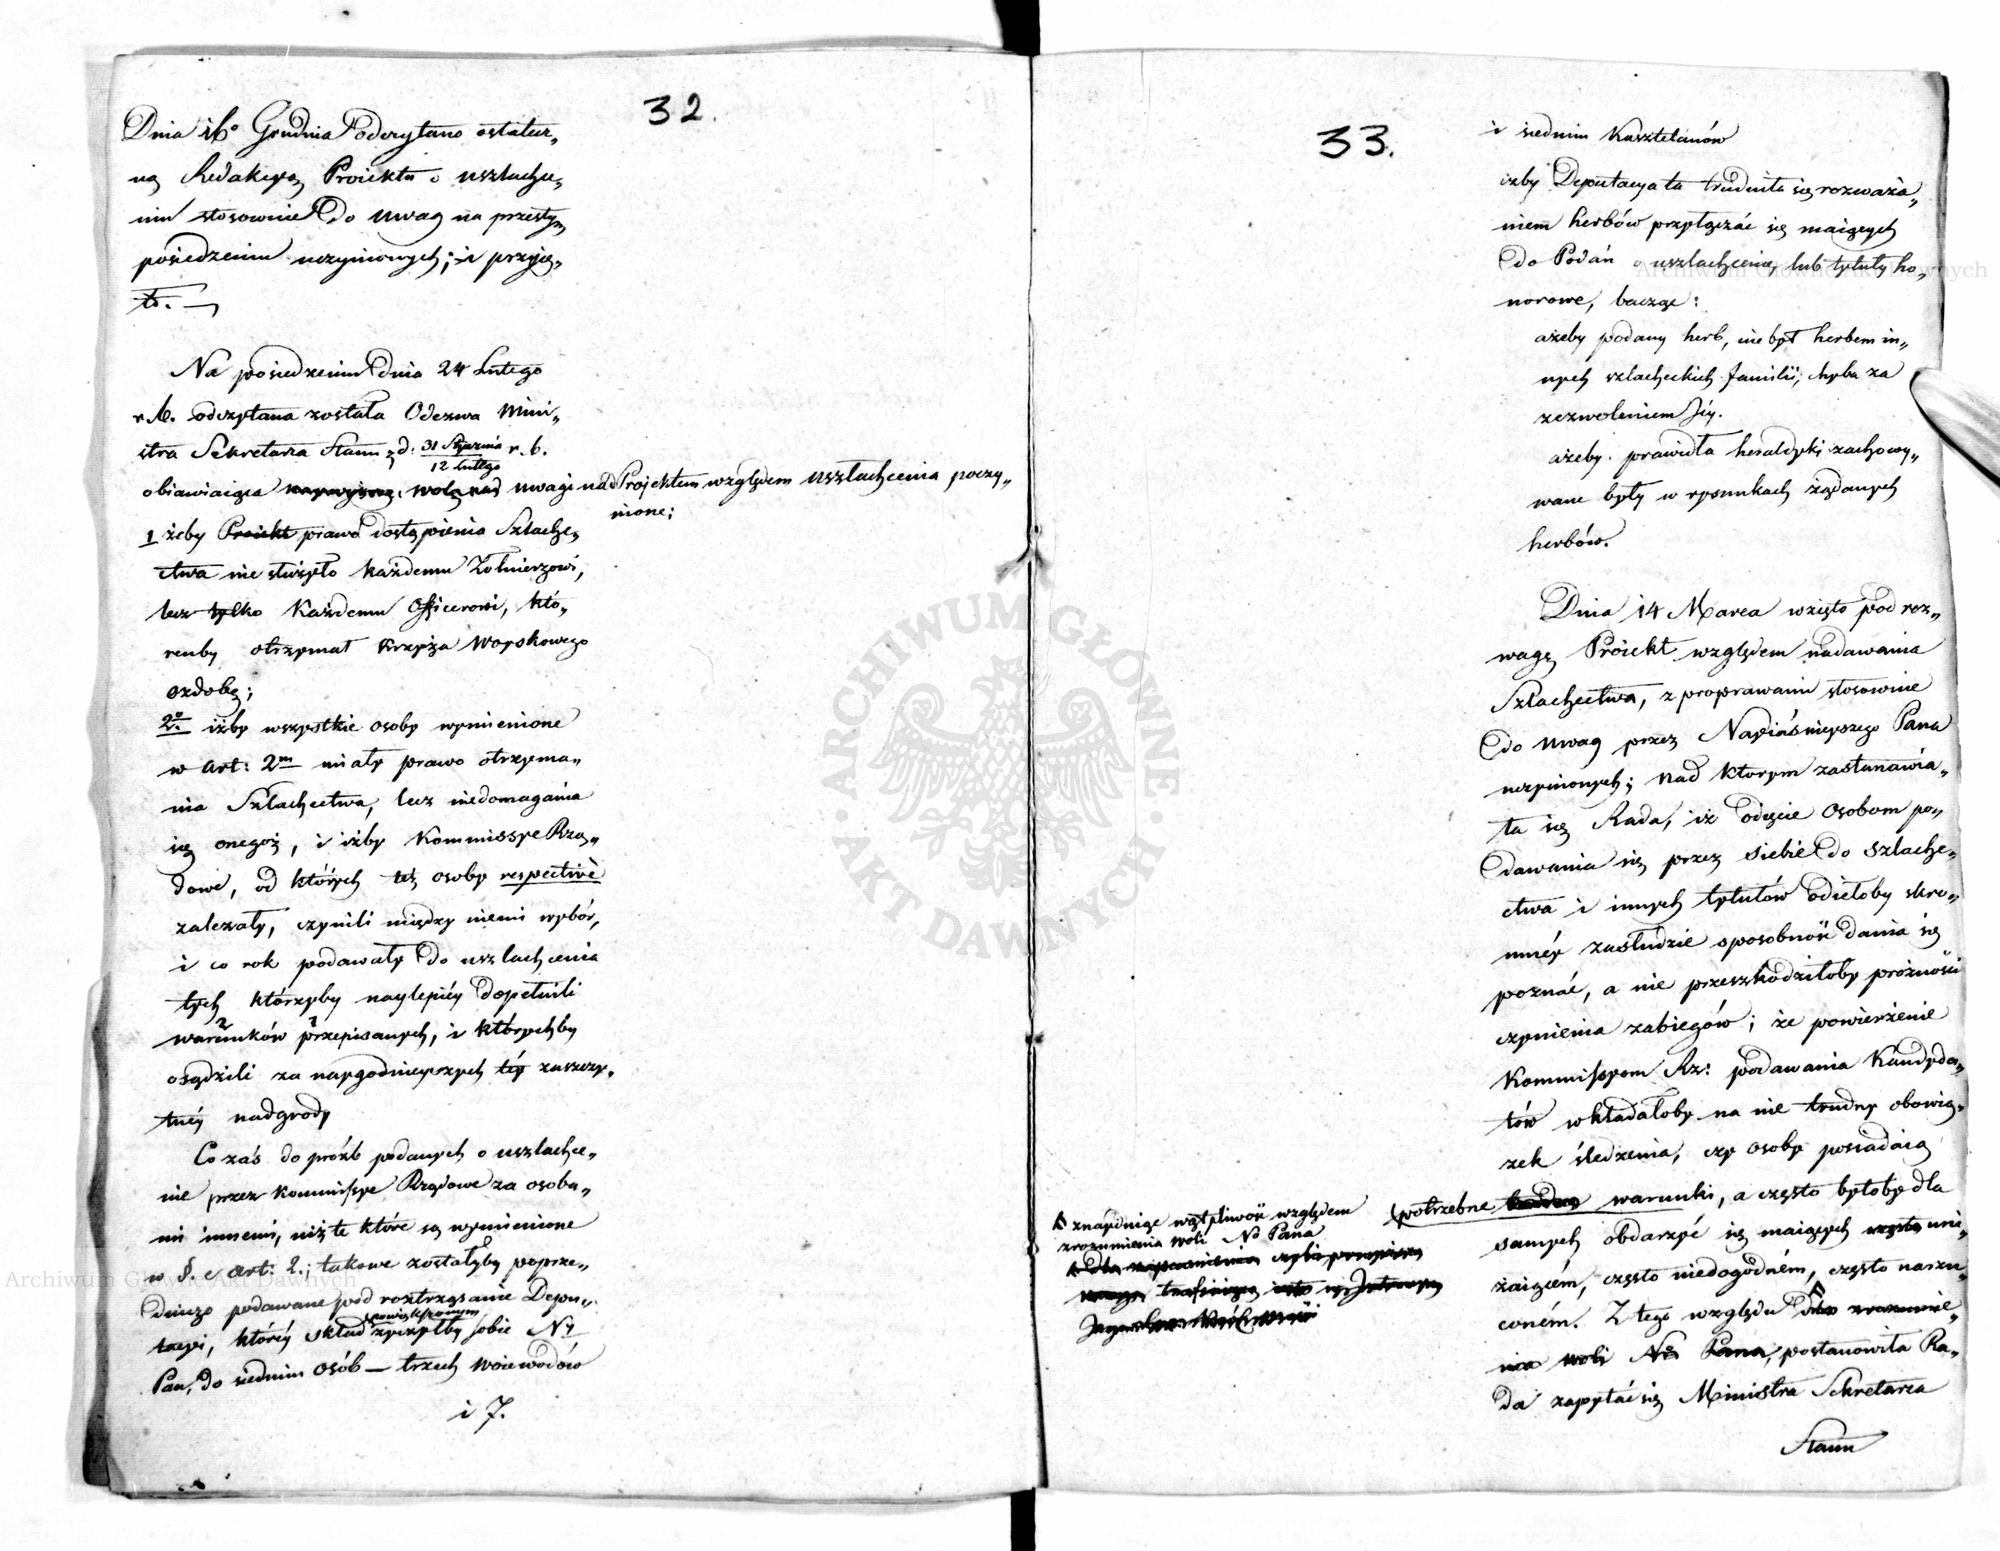 32.
Dnia 16º Grudnia odczytano ostatecz„
ną Redakcyą Proiektu o uszlachce„
niu stosownie do uwag na przeszłym
posiedzeniu uczynionych; i przyię„
to. —
Na posiedzeniu dnia 24 Lutego
r. b. odczytana została Odezwa Mini„
stra Sekretarza Stanu z d. 31 Stycznia / 12 Lutego r. b.
obiawiaiąca uwagi nad Proiektem względem uszlachcenia poczy„
nione;
1 żeby Proiekt prawo dostąpienia Szlache„
ctwa nie służyło każdemu Żołnierzowi,
lecz tylko każdemu Officerowi, któ„
renby otrzymał Krzyża Woyskowego
ozdobę;
2º. iżby wszystkie osoby wymienione
w Art: 2m miały prawo otrzyma„
nia Szlachectwa, lecz niedomagania
się onegoż, i iżby Kommissye Rzą„
dowe, od których te osoby respectivè
zależały, czynili między niemi wybór,
i co rok podawały do uszlachcenia
tych którzyby naylepiéy dopełnili
warunków przepisanych, i którychby
osądzili za naygodnieyszych téy zaszczy„
tnéy nadgrody
Co zaś do próźb podanych o uszlachce„
nie przez Kommissye Rządowe za osoba„
mi innemi, niż te które są wymienione
w §. e art: 2.; takowe zostałyby poprze„
dniczo podawane pod roztrząsanie Depu„
tacyi, któréy skład powiększonym życzyłby sobie Ny
Pan, do siedmiu osób — trzech Woiewodów
i 7.
33.
i siedmiu Kasztelanów
iżby Deputacya ta trudniła się rozważa„
niem herbów przyłączać się maiących
do Podań o uszlachcenie, lub tytuły ho„
norowe, bacząc:
ażeby podany herb, nie był herbem in„
nych szlacheckich familii; chyba za
zezwoleniem Jéy.
ażeby prawidła heraldyki zachowy„
wane były w rysunkach żądanych
herbów.
Dnia 14 Marca wzięto pod roz„
wagę Proiekt względem nadawania
Szlachectwa, z poprawami stosownie
do uwag przez Nayiaśnieyszego Pana
uczynionych; nad którym zastanawia„
ła się Rada, iż odięcie osobom po„
dawania się przez siebie do szlache„
ctwa i innych tytułów odiełoby skro„
mnéy zasłudze sposobność dania się
poznać, a nie przeszkodziłoby próżności
czynienia zabiegów; że powierzenie
Kommissyom Rz: podawania Kandyda„
tów wkładałoby na nie trudny obowią„
zek śledzenia, czy osoby posiadaią
potrzebne warunki, a często byłoby dla
samych obdarzyć się maiących uni„
żaiącém, często niedogodném, często narzu„
coném. Z tego względu dla zrozumie„
nia woli No Pana, postanowiła Ra„
da zapytać się Ministra Sekretarza
Stanu
znayduiąc wątpliwość względem
zrozumienia woli No Pana
Archiwum Główne Akt Dawnych
Archiwum Główne Akt Dawnych
ARCHIWUM GŁÓWNE · AKT DAWNYCH ·